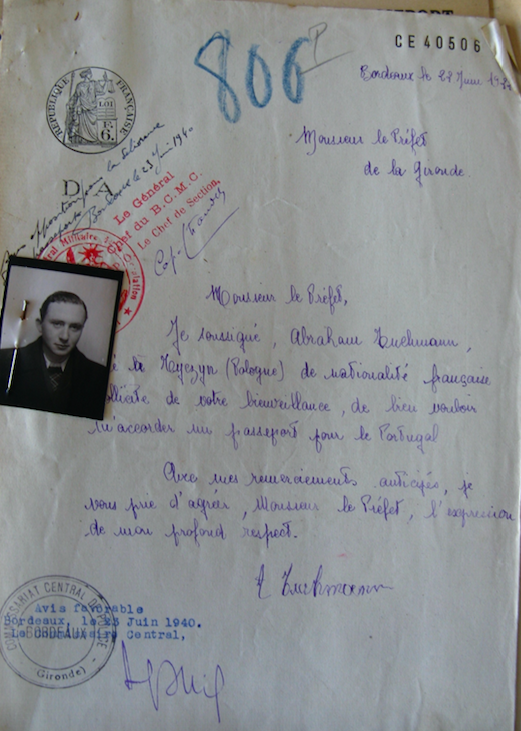 CE 40506
806
Bordeaux le 22 Juin
RÉPUBLIQUE FRANÇAISE
LOI
F.
6.
Monsieur le Préfet
de la Gironde.
D.A
pour la délivrance
Bordeaux le 23 Juin 1940
Le Général
Chef du B.C.M.C.
Le Chef de Section,
Monsieur le Préfet,
Je soussigné, Abraham Zuckmann,
(Pologne) de nationalité française
de votre bienveillance, de bien vouloir
m'accorder un passeport pour le Portugal
Avec mes remerciements anticipés, je
vous prie d'agréer, Monsieur le Préfet, l'expression
de mon profond respect.
A Zuckmann
COMMISSARIAT CENTRAL DE POLICE
BORDEAUX
(Gironde)
Avis favorable
Bordeaux, le 23 Juin 1940.
Le Commissaire Central,